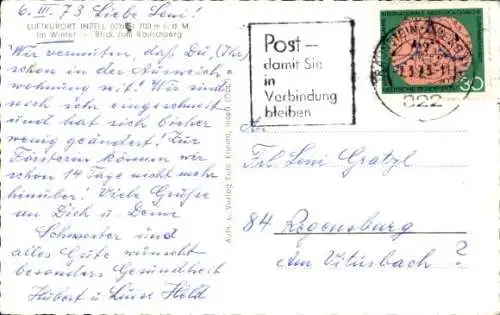 6. III. 73 Liebe Leni!
LUFTKURORT INZELL (Obb.) 700 m ü. d. M.
im Winter — Blick zum Rauschberg
Wir vermuten, daß Du, (Ihr)
schon in der Ausweich-
wohnung wit! Wir sind
noch sehr eingeschneit
und hat sich bisher
wenig geändert! Zur
Försterin können wir
schon 14 Tage nicht mehr
hinüber! Viele Grüße
an Dich u. Deine
Schwester und
alles Gute wünscht
besonders Gesundheit
Hubert u. Luise Held
Post —
damit Sie
in
Verbindung
bleiben
822
30
DEUTSCHE BUNDESPOST
An
Frl. Leni Gratzl
84 Regensburg
Am Vitusbach ?